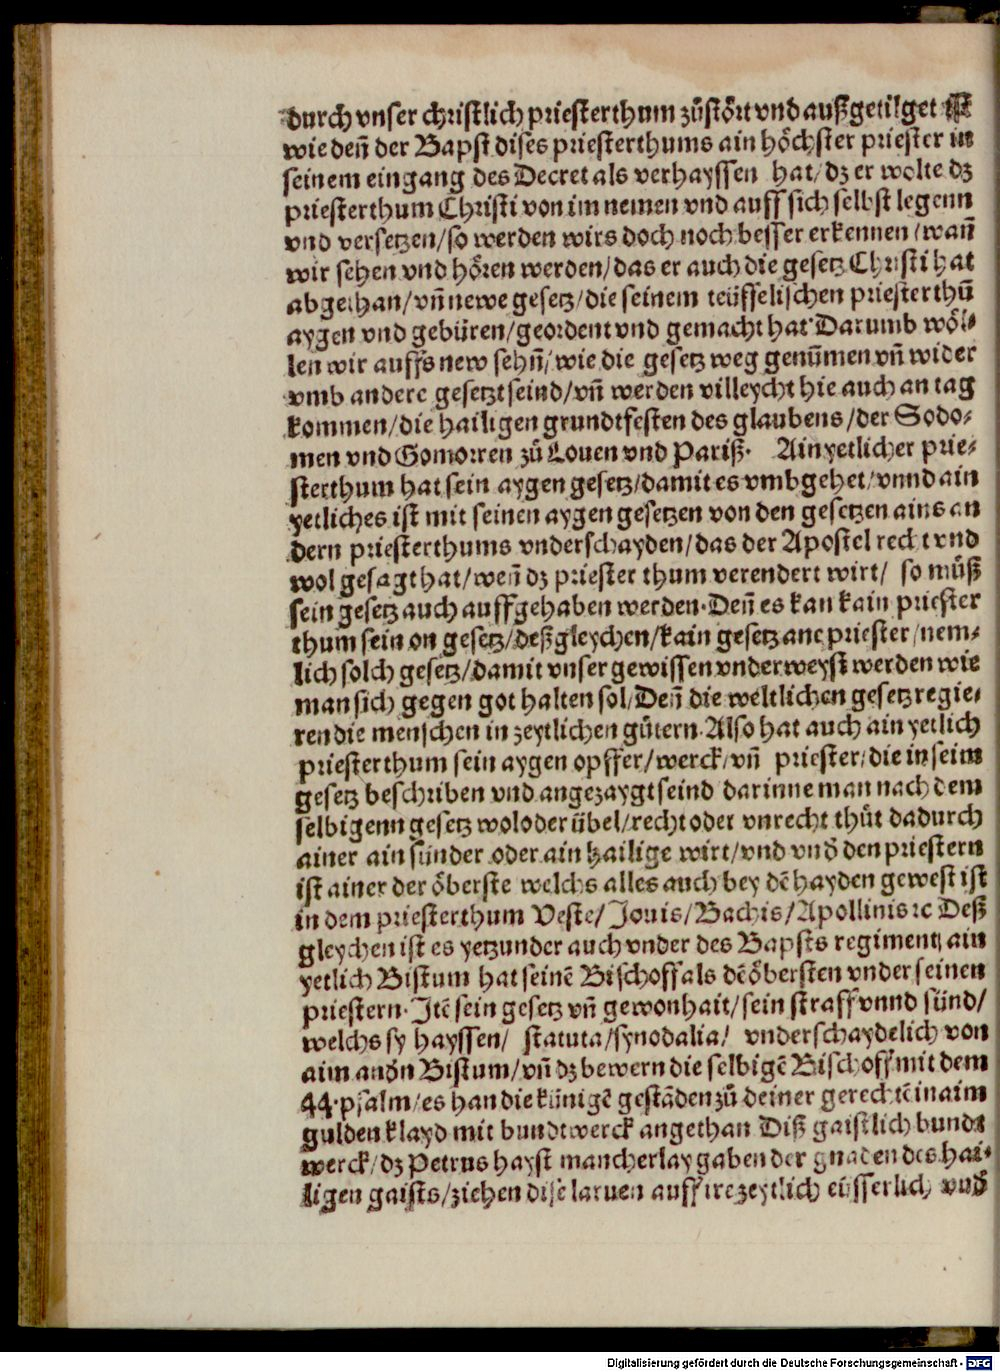 durch vnser christlich priesterthum zůstört vnd außgetilget ist
wie deñ der Bapst dises priesterthums ain höchster priester in
seinem eingang des Decretals verhayssen hat/ dz er wolte dz
priesterthum Christi von im nemen vnd auff sich selbst legenn
vnd versetzen/ so werden wirs doch noch besser erkennen/ wañ
wir sehen vnd hören werden/ das er auch die gesetz Christi hat
abgethan/ vñ newe gesetz/ die seinem teüffelischen priesterthū
aygen vnd gebüren/ geordent vnd gemacht hat Darumb wöl-
len wir auffs new sehñ/ wie die gesetz weg genūmen vñ wider
vmb andere gesetzt seind/ vñ werden villeycht hie auch an tag
kommen/ die hailigen grundtfesten des glaubens/ der Sodo-
men vnd Gomorren zů Louen vnd Pariß. Ain yetlicher prie-
sterthum hat sein aygen gesetz/ damit es vmbgehet/ vnnd ain
yetliches ist mit seinen aygen gesetzen von den gesetzen ains an
dern priesterthums vnderschayden/ das der Apostel recht vnd
wol gesagt hat/ weñ dz priester thum verendert wirt/ so můß
sein gesetz auch auffgehaben werden. Deñ es kan kain priester
thum sein on gesetz/ deßgleychen/ kain gesetz ane priester/ nem-
lich solch gesetz/ damit vnser gewissen vnderweyst werden wie
man sich gegen got halten sol/ Deñ die weltlichen gesetz regie-
ren die menschen in zeytlichen gůtern. Also hat auch ain yetlich
priesterthum sein aygen opffer/ werck/ vñ priester/ die in seim
gesetz beschriben vnd angezaygt seind darinne man nach dem
selbigenn gesetz wol oder übel/ recht oder vnrecht thůt dadurch
ainer ain sünder oder ain hailige wirt/ vnd vnď den priestern
ist ainer der öberste welchs alles auch bey dē hayden gewest ist
in dem priesterthum Veste/ Jouis/ Bachis/ Apollinis ꝛc Deß
gleychen ist es yetzunder auch vnder des Bapsts regiment/ ain
yetlich Bistum hat seinē Bischoff als dē öbersten vnder seinen
priestern. Jtē sein gesetz vñ gewonhait/ sein straff vnnd sünd/
welchs sy hayssen/ statuta/ synodalia/ vnderschaydelich von
aim anďn Bistum/ vñ dz bewern die selbigē Bischoff mit dem
44. psalm/ es han die künigē gestādē zů deiner gerechtē in aim
gulden klayd mit bundtwerck angethan Diß gaistlich bundt
werck/ dz Petrus hayst mancherlay gaben der gnaden des hai-
ligen gaists/ ziehen dise laruen auff ire zeytlich eüsserlich vnď
Digitalisierung gefördert durch die Deutsche Forschungsgemeinschaft - DFG